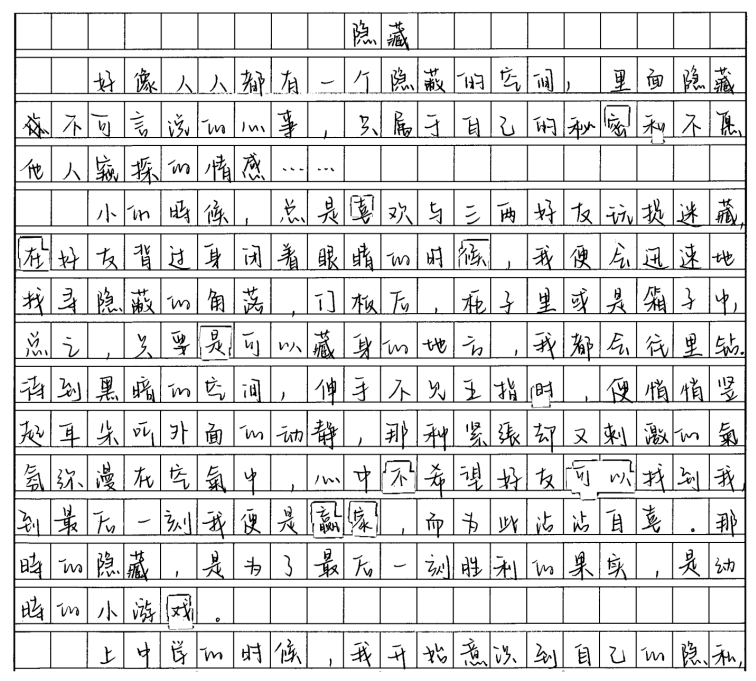 隐藏
好像人人都有一个隐蔽的空间，里面隐藏
不可言说的心事，只属于自己的秘密和不愿
他人窥探的情感……
小的時候，总是喜欢与三两好友玩捉迷藏，
在好友背过身闭着眼睛的时候，我便会迅速地
找寻隐蔽的角落，门板后，柜子里或是箱子中，
总之，只要是可以藏身的地方，我都会往里钻。
待到黑暗的空间，伸手不见五指时，便悄悄竖
起耳朵听外面的动静，那种紧張却又刺激的氣
氛弥漫在空氣中，心中不希望好友可以找到我，
到最后一刻我便是赢家，而为此沾沾自喜。那
時的隐藏，是为了最后一刻胜利的果实，是幼
時的小游戏。
上中学的时候，我开始意识到自己的隐私，